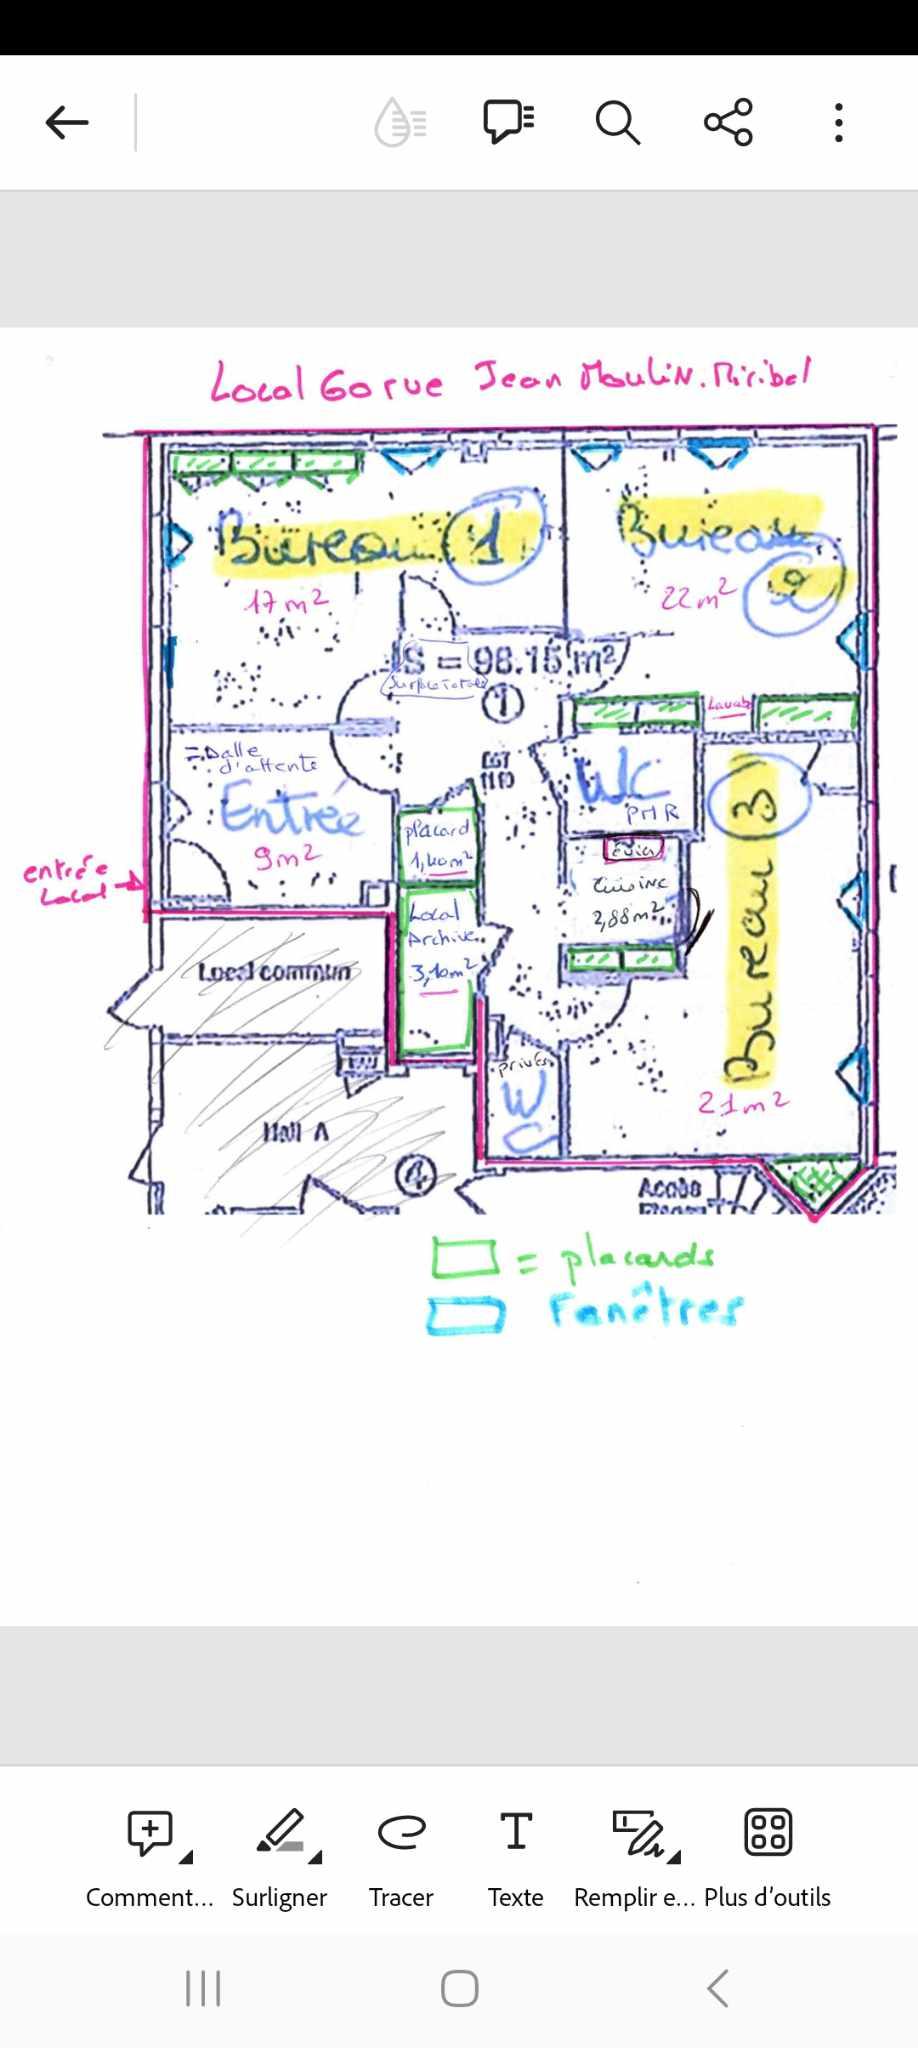 Local 60 rue Jean Moulin. Miribel
Bureau 1
17 m²
Bureau
2
22 m²
S = 98.15 m²
Surface Totale
1
= Salle
d'attente
Entrée
9 m²
entrée
Local
placard
1,40 m²
Local
Archive
3,10 m²
Lavabo
WC
PMR
Evier
Cuisine
2,88 m²
Bureau 3
21 m²
privés
WC
Local commun
Hall A
4
Accès
= placards
Fenêtres
Comment...
Surligner
Tracer
T
Texte
Remplir e...
Plus d'outils